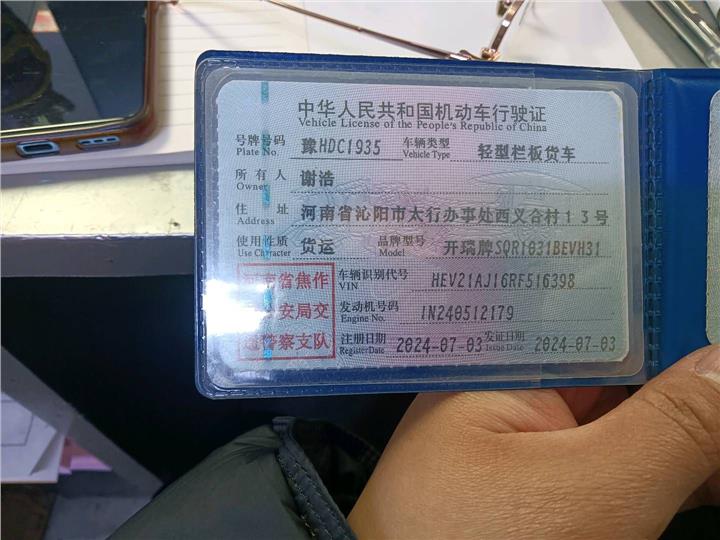 中华人民共和国机动车行驶证
Vehicle License of the People's Republic of China
号牌号码 豫HDC1935 车辆类型 轻型栏板货车
Plate No. Vehicle Type
所有人 谢浩
Owner
住址 河南省沁阳市太行办事处西义合村13号
Address
使用性质 货运 品牌型号 开瑞牌SQR1031BEVH31
Use Character Model
河南省焦作
安局交
警察支队
车辆识别代号 HEV21AJ16RF516398
VIN
发动机号码 IN240512179
Engine No.
注册日期 2024-07-03 发证日期 2024-07-03
Register Date Issue Date